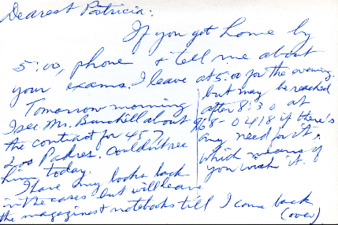 Dearest Patricia:
If you get home by
5:00, phone & tell me about
your exams. I leave at 5:00 for the evening
but may be reached
after 8:30 at
968-0418 if there's
any need for it,
which means if
you wish it.
Tomorrow morning
I see Mr. about
the contract for 457
Couldn't see
him today.
I have my books back
in the cases but will leave
the magazines & notebooks till I come back
(over)